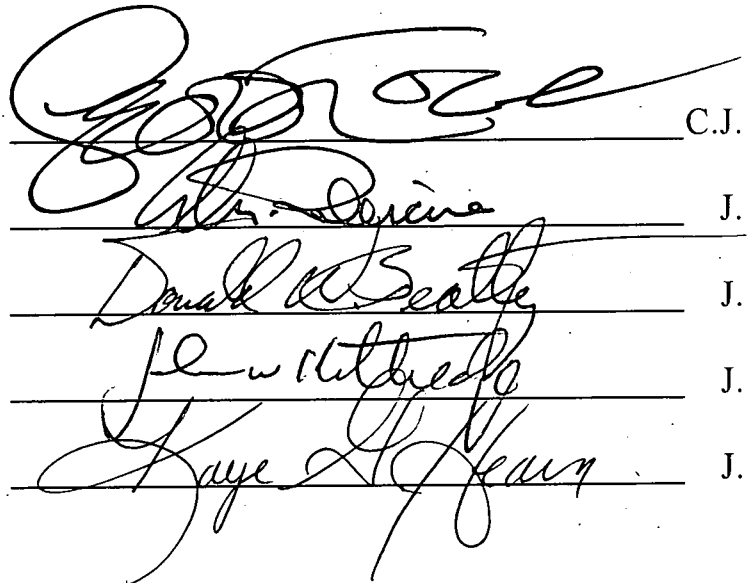 C.J.
J.
Donald W. Beatty J.
John W Kittredge J.
Kaye G Hearn J.